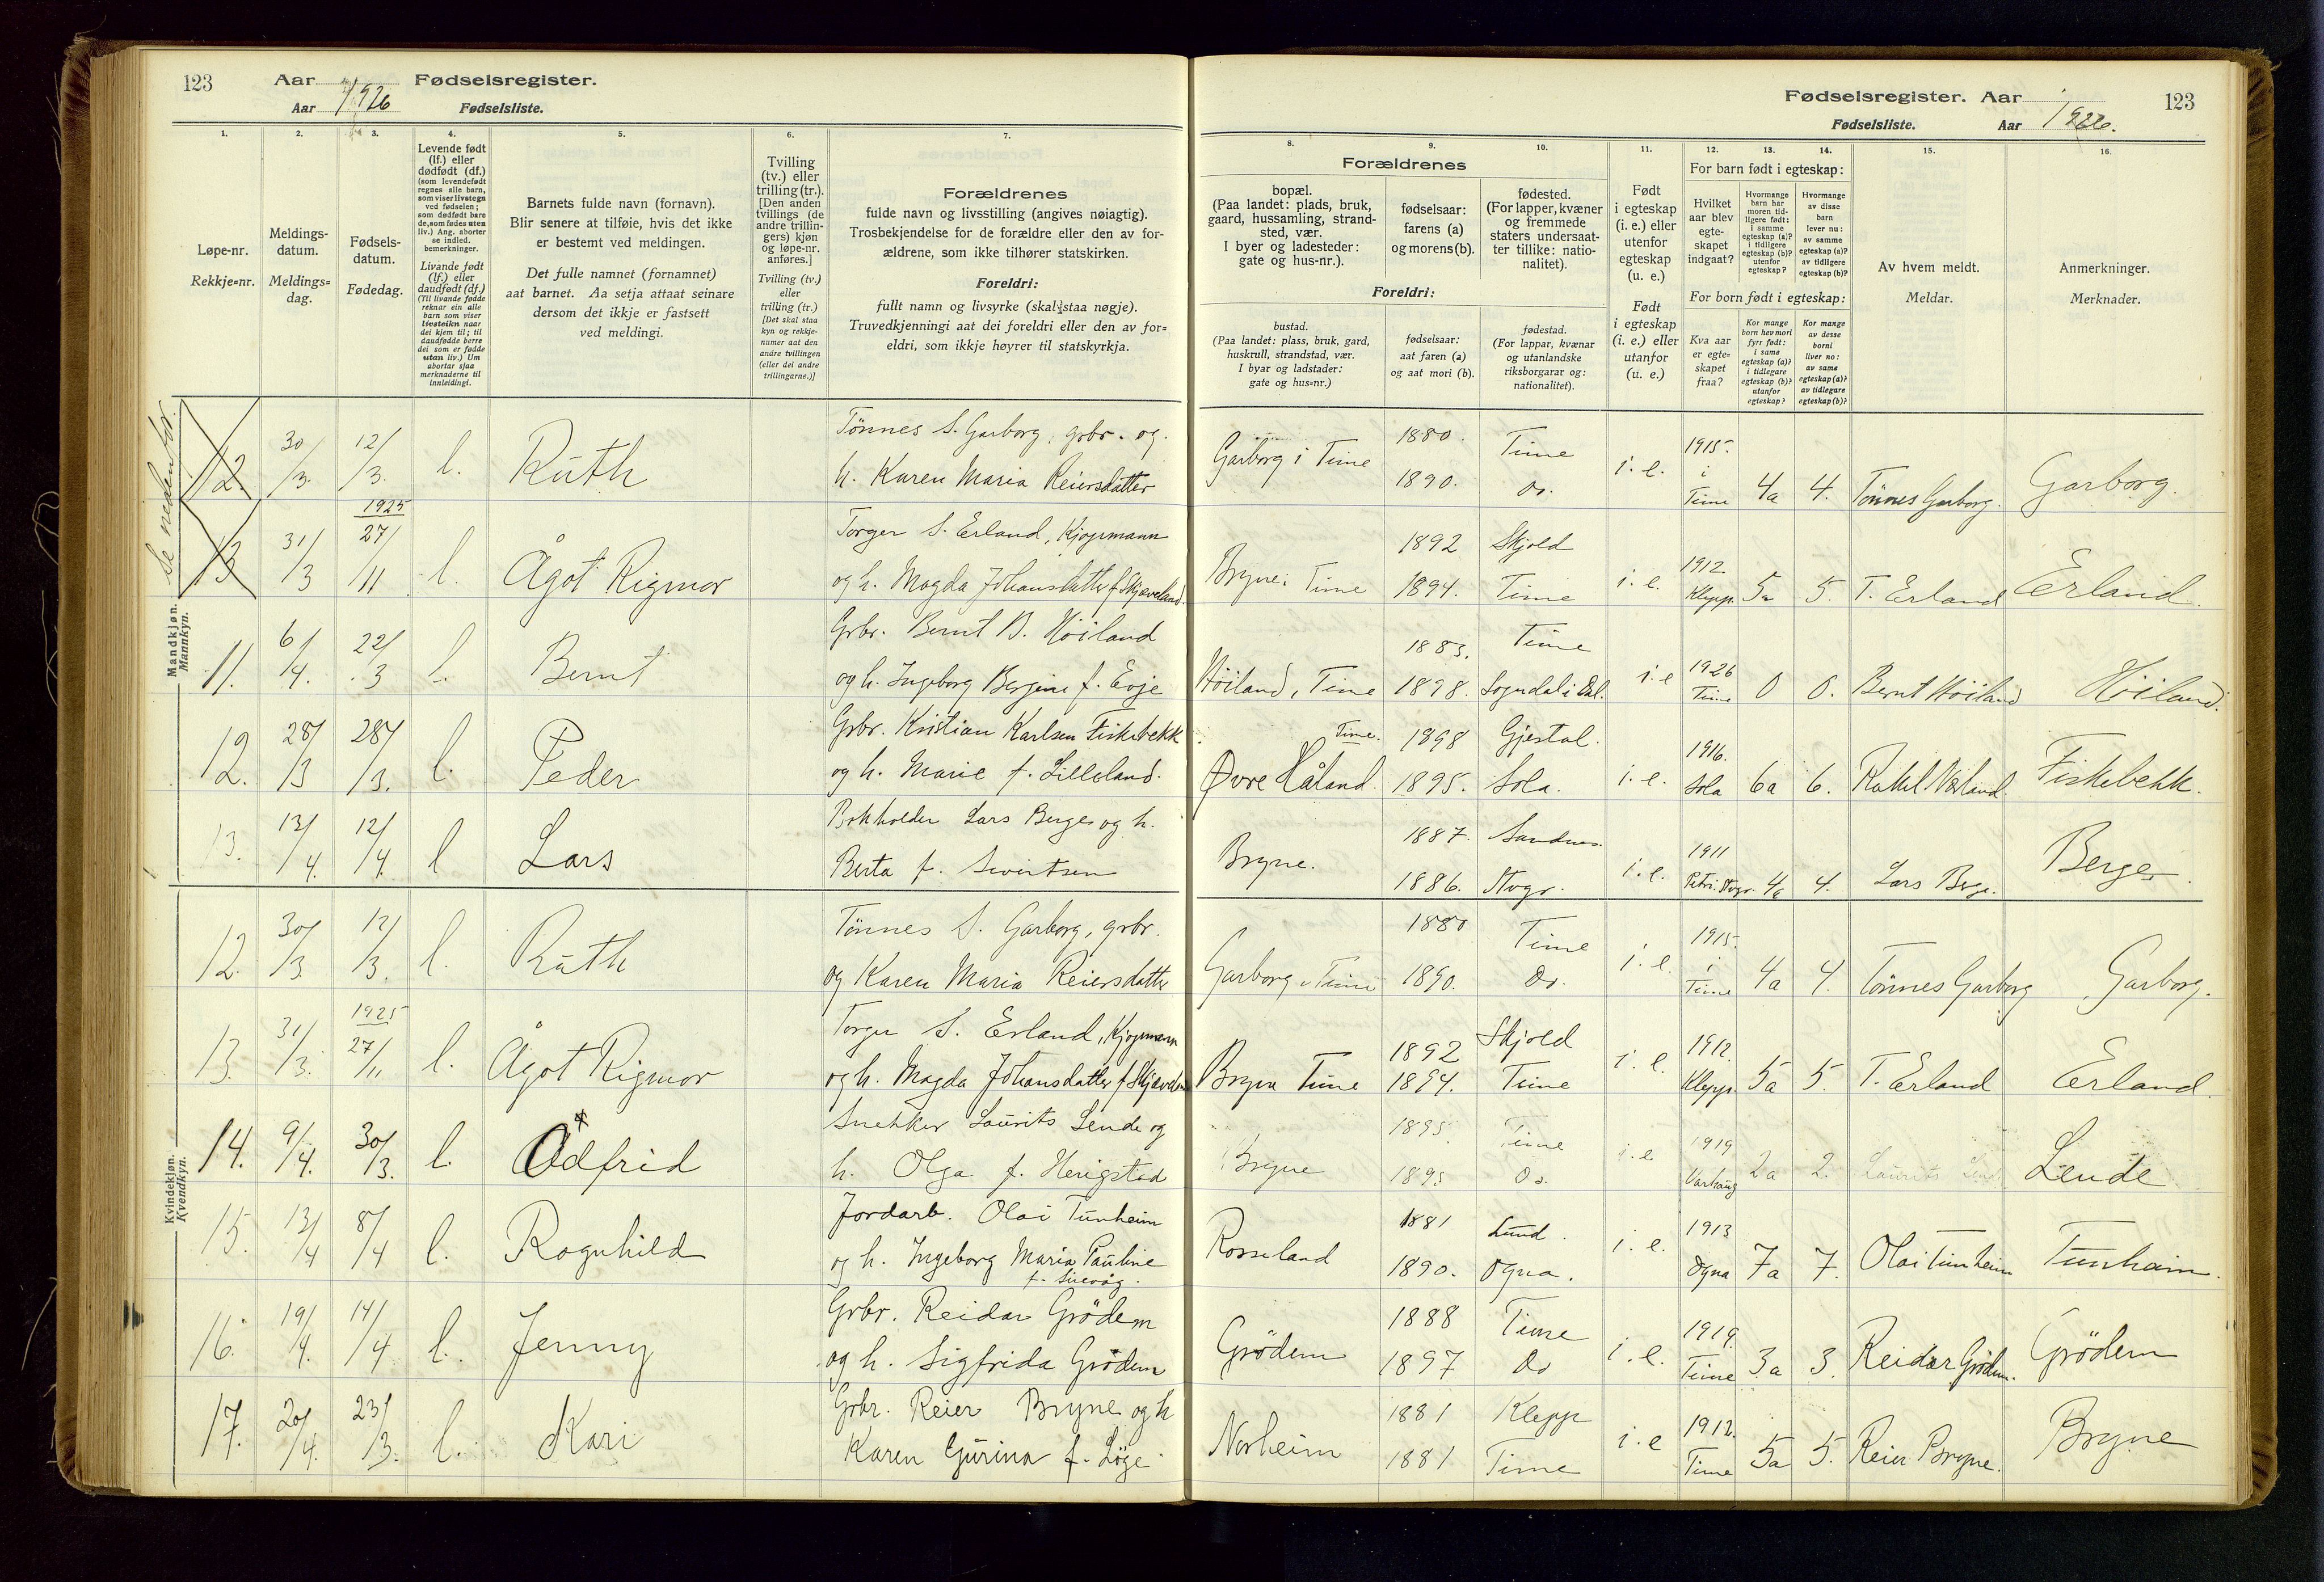 123 Aar 1926 Fødselsregister.
Aar Fødselsliste.
Fødselsregister. Aar 1926. 123
Fødselsliste. Aar
1. 2. 3. 4. 5. 6. 7. 8. 9. 10. 11. 12. 13. 14. 15. 16.
Løpe-nr.
Rekkje=nr.
Meldings-
datum.
Meldings=
dag.
Fødsels-
datum.
Fødedag.
Levende født
(lf.) eller
dødfødt (df.)
(som levendefødt
regnes alle barn,
som viser livstegn
ved fødselen;
som dødfødt bare
de, som fødes uten
liv.) Ang. aborter
se indled.
bemerkninger.
Livande født
(lf.) eller
daudfødt (df.)
(Til livande fødde
reknar ein alle
barn som viser
livsteikn naar
dei kjem til; til
daudfødde berre
dei som er fødde
utan liv.) Um
abortar sjaa
merknaderne til
innleidingi.
Barnets fulde navn (fornavn).
Blir senere at tilføie, hvis det ikke
er bestemt ved meldingen.
Det fulle namnet (fornamnet)
aat barnet. Aa setja attaat seinare
dersom det ikkje er fastsett
ved meldingi.
Tvilling
(tv.) eller
trilling (tr.).
[Den anden
tvillings (de
andre trillin-
gers) kjøn
og løpe-nr.
anføres.]
Tvilling (tv.)
eller
trilling (tr.)
[Det skal staa
kyn og rekkje-
numer aat den
andre tvillingen
(eller dei andre
trillingarne.)]
Forældrenes
fulde navn og livsstilling (angives nøiagtig).
Trosbekjendelse for de forældre eller den av for-
ældrene, som ikke tilhører statskirken.
Foreldri:
fullt namn og livsyrke (skal staa nøgje).
Truvedkjenningi aat dei foreldri eller den av for=
eldri, som ikkje høyrer til statskyrkja.
Forældrenes
bopæl.
(Paa landet: plads, bruk,
gaard, hussamling, strand-
sted, vær.
I byer og ladesteder:
gate og hus-nr.).
fødselsaar:
farens (a)
og morens (b).
fødested.
(For lapper, kvæner
og fremmede
staters undersaat-
ter tillike: natio-
nalitet).
Foreldri:
bustad.
(Paa landet: plass, bruk, gard,
huskrull, strandstad, vær.
I byar og ladstader:
gate og hus=nr.)
fødselsaar:
aat faren (a)
og aat mori (b).
fødestad.
(For lappar, kvænar
og utanlandske
riksborgarar og:
nationalitet).
Født
i egteskap
(i. e.) eller
utenfor
egteskap
(u. e.)
Født
i egteskap
(i. e.) eller
utanfor
(u. e.)
For barn født i egteskap:
Hvilket
aar blev
egte-
skapet
indgaat?
Hvormange
barn har
moren tid-
ligere født:
i samme
egteskap (a)?
i tidligere
egteskap (b)?
utenfor
egteskap?
Hvormange
av disse
barn
lever nu:
av samme
egteskap (a)?
av tidligere
egteskap (b)?
For born født i egteskap:
Kva aar
er egte=
skapet
fraa?
Kor mange
born hev mori
fyrr født:
i same
egteskap (a)?
i tidlegare
egteskap (b)?
utanfor
egteskap?
Kor mange
av desse
borni
liver no:
av same
egteskap (a)?
av tidlegare
egteskap (b)?
Av hvem meldt.
Meldar.
Anmerkninger.
Merknader.
Se nedenfor.
Mandkjøn.
Mannkyn.
12 30/3. 12/3. l. Ruth Tönnes S. Garborg, grbr. og
h. Karen Maria Reiersdatter
Garborg i Time 1880. Time
1890. Do. i. e. 1915. i Time 4a 4. Tönnes Garborg. Garborg.
13 31/3 1925 27/11 l. Ågot Rigmor Torger S. Erland, Kjøpmann
og h. Magda Johansdatter f. Skjæveland.
Bryne i Time 1892 Skjold
1894. Time i. e. 1912 Klepp. 5a 5. T. Erland Erland.
11. 6/4. 22/3 l. Bernt Grbr. Bernt B. Höiland
og h. Ingeborg Bergine f. Evje
Höiland, Time 1883. Time
1898. Sogndal i Dal. i. e 1926 Time 0 0. Bernt Höiland Höiland.
12. 28/3 28/3. l. Peder Grbr. Kristian Karlsen Fiskebekk
og h. Marie f. Lilleland.
Time. Øvre Håland. 1898 Gjestal.
1895. Sola. i. e. 1916. Sola 6a 6. Rakel Væland. Fiskebekk.
13. 13/4. 12/4. l Lars Bokholder Lars Berge og h.
Berta f. Sivertsen
Bryne. 1887. Sandnes.
1886. Stvgr. i. e. 1911 Petri. Stvgr. 4a 4. Lars Berge. Berge.
Kvindekjøn.
Kvendkyn.
12. 30/3 12/3. l. Ruth Tönnes S. Garborg, grbr.
og Karen Maria Reiersdatter
Garborg i Time 1880 Time
1890. Do. i. e. 1915. i Time 4a 4. Tönnes Garborg Garborg.
13. 31/3. 1925 27/11 l. Ågot Rigmor Torger S. Erland, Kjøpmann
og h. Magda Johansdatter f. Skjæveland
Bryne Time 1892 Skjold
1894. Time i. e. 1912. Klepp. 5a 5. T. Erland Erland.
14. 9/4. 30/3. l. Odfrid Snekker Laurits Lende og
h. Olga f. Herigstad
Bryne 1895. Time
1895 Do. i. e 1919 Varhaug 2a 2. Laurits Lende Lende
15. 13/4 8/4 l. Ragnhild Jordarb. Olai Tunheim
og h. Ingeborg Maria Pauline
f. Sirevåg.
Rosseland 1881 Lund.
1890. Ogna. i. e. 1913 Ogna 7a 7. Olai Tunheim Tunheim.
16. 19/4. 14/4 l. Jenny Grbr. Reidar Grödem
og h. Sigfrida Grödem
Grödem 1888 Time
1897 Do i. e. 1919. Time 3a 3. Reidar Grödem. Grödem
17. 20/4. 23/3. l. Kari Grbr. Reier Bryne og h
Karen Gurina f. Löge
Norheim 1881 Klepp
1881 Time i. e 1912. Time 5a 5. Reier Bryne. Bryne